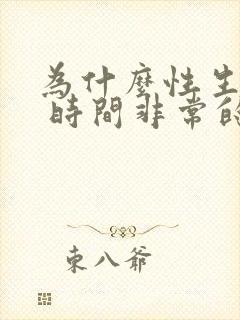 為什麼性生
時間非常的
東八爺